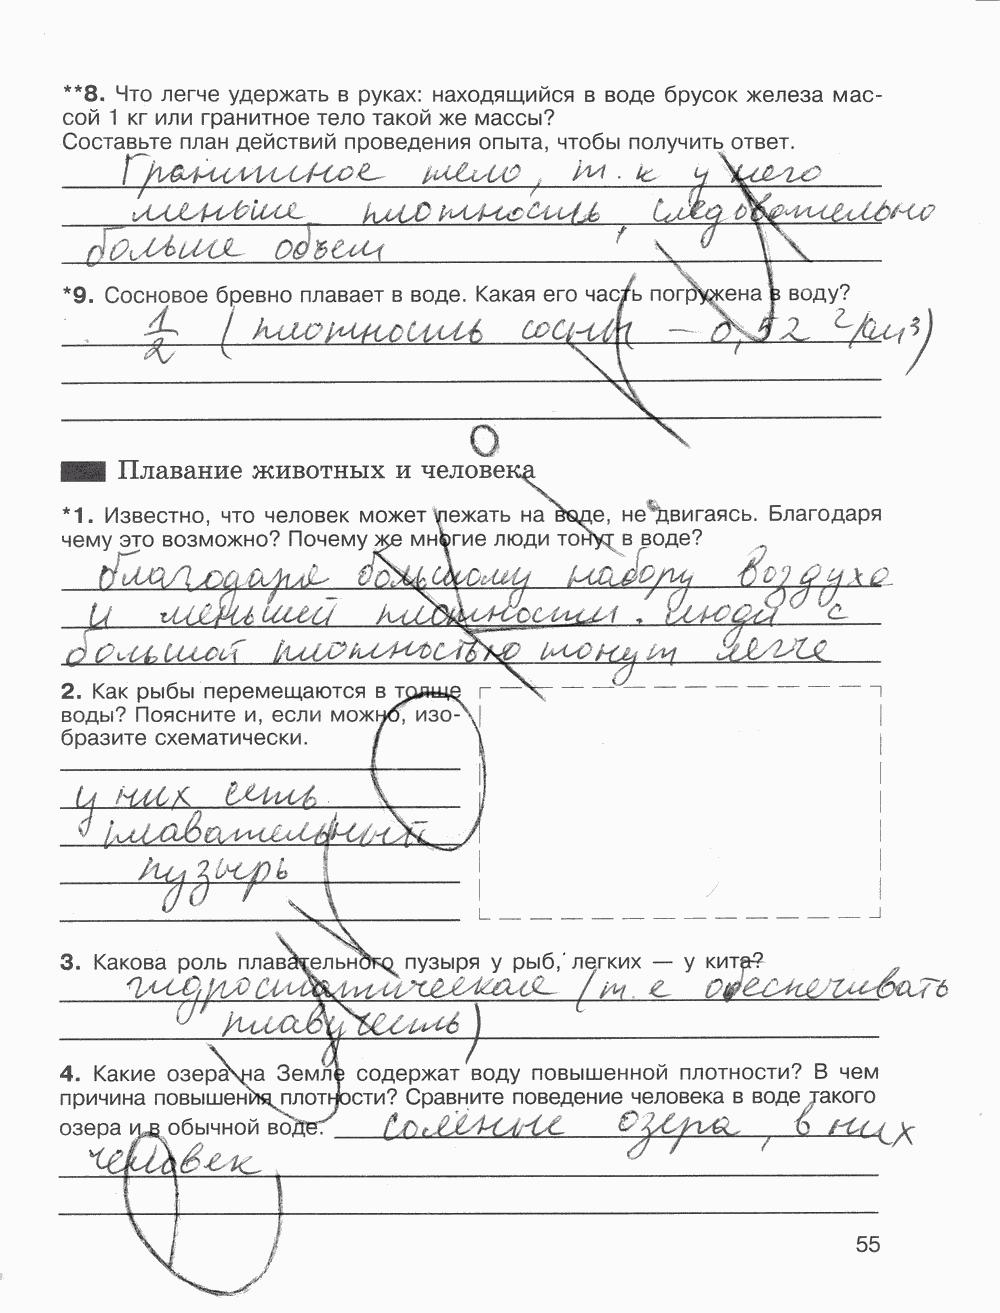 **8. Что легче удержать в руках: находящийся в воде брусок железа мас-
сой 1 кг или гранитное тело такой же массы?
Составьте план действий проведения опыта, чтобы получить ответ.
Гранитное тело, т.к у него
меньше плотность, следовательно
больше объем
*9. Сосновое бревно плавает в воде. Какая его часть погружена в воду?
1/2 (плотность сосны – 0,52 г/см³)
Плавание животных и человека
*1. Известно, что человек может лежать на воде, не двигаясь. Благодаря
чему это возможно? Почему же многие люди тонут в воде?
благодаря большому набору воздуха
и меньшей плотности. люди с
большой плотностью тонут легче
2. Как рыбы перемещаются в толще
воды? Поясните и, если можно, изо-
бразите схематически.
у них есть
плавательный
пузырь
3. Какова роль плавательного пузыря у рыб, легких — у кита?
гидростатическая (т.е обеспечивать
плавучесть)
4. Какие озера на Земле содержат воду повышенной плотности? В чем
причина повышения плотности? Сравните поведение человека в воде такого
озера и в обычной воде. солёные озера, в них
человек
55